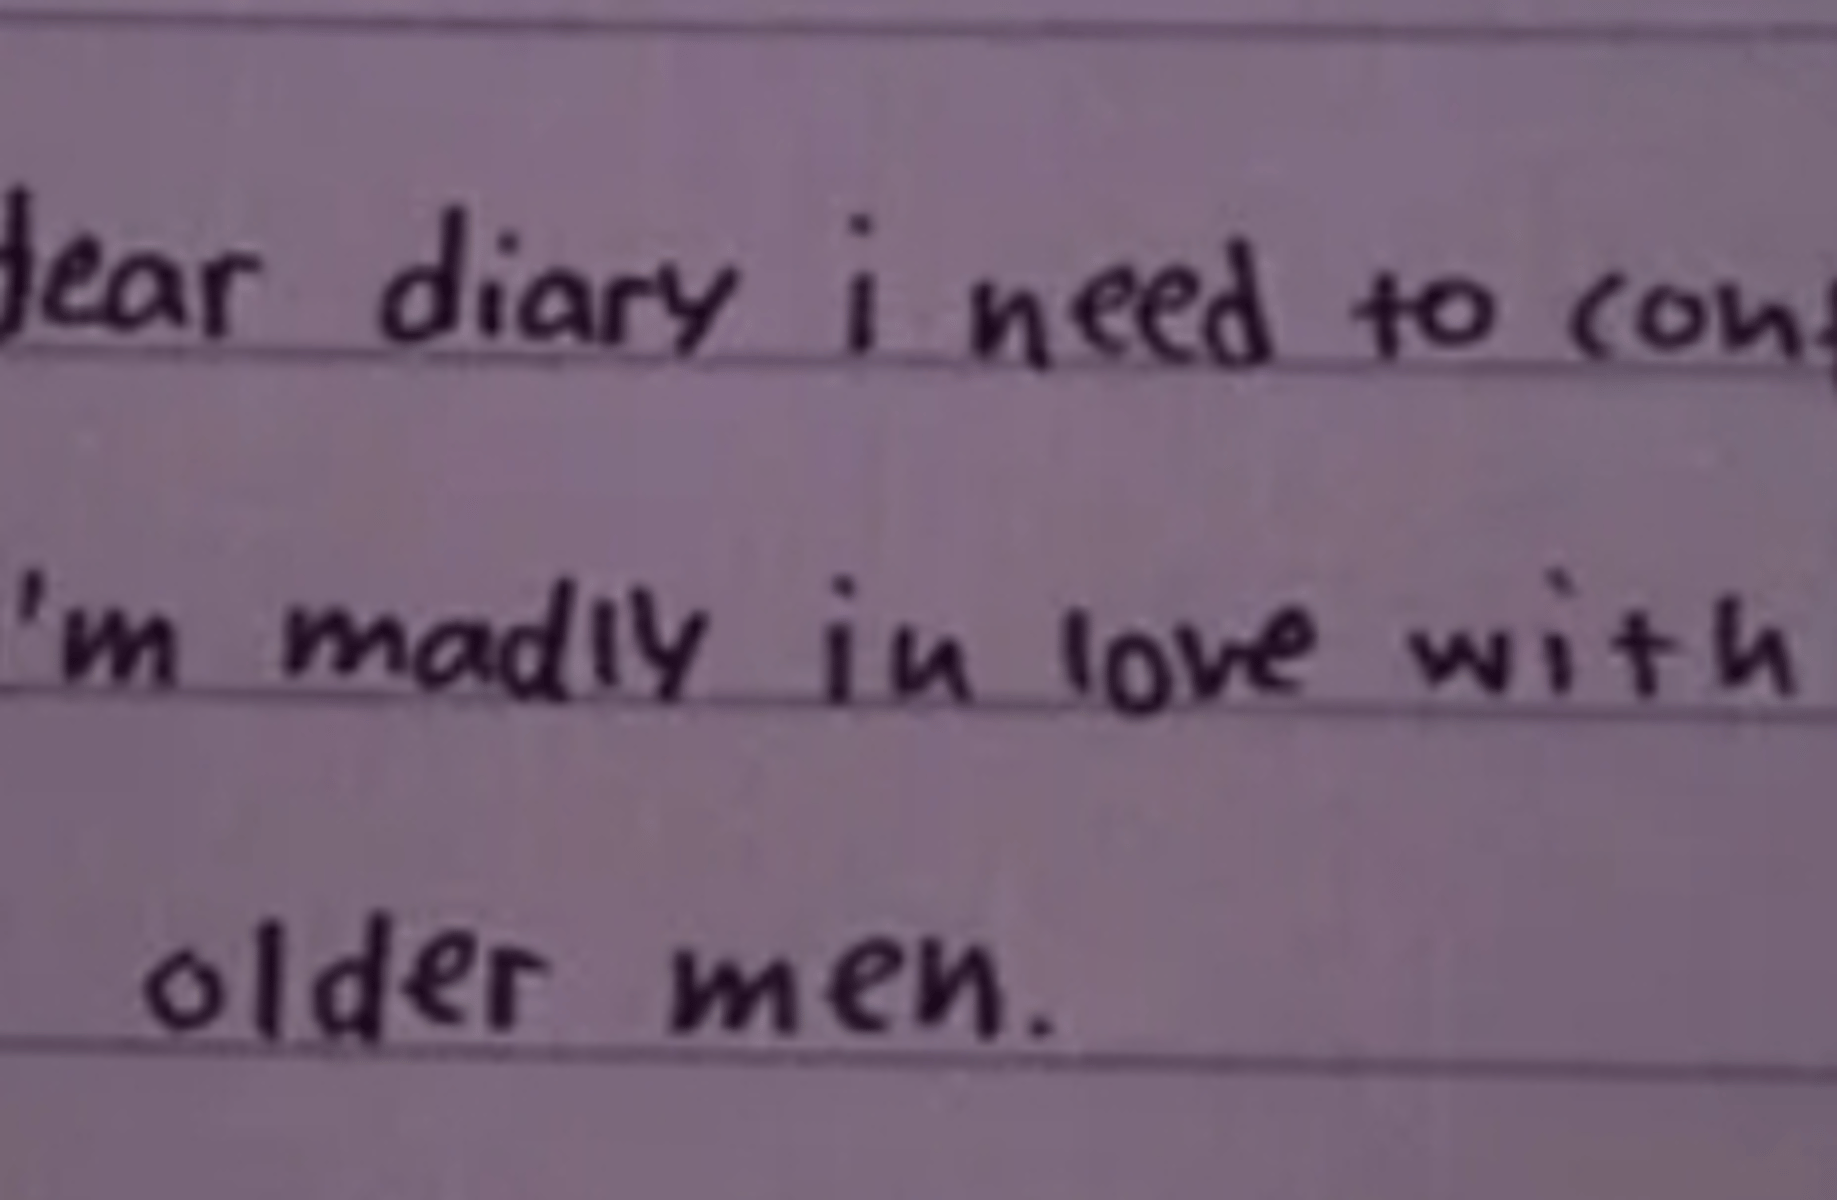 dear diary i need to conf
'm madly in love with
older men.